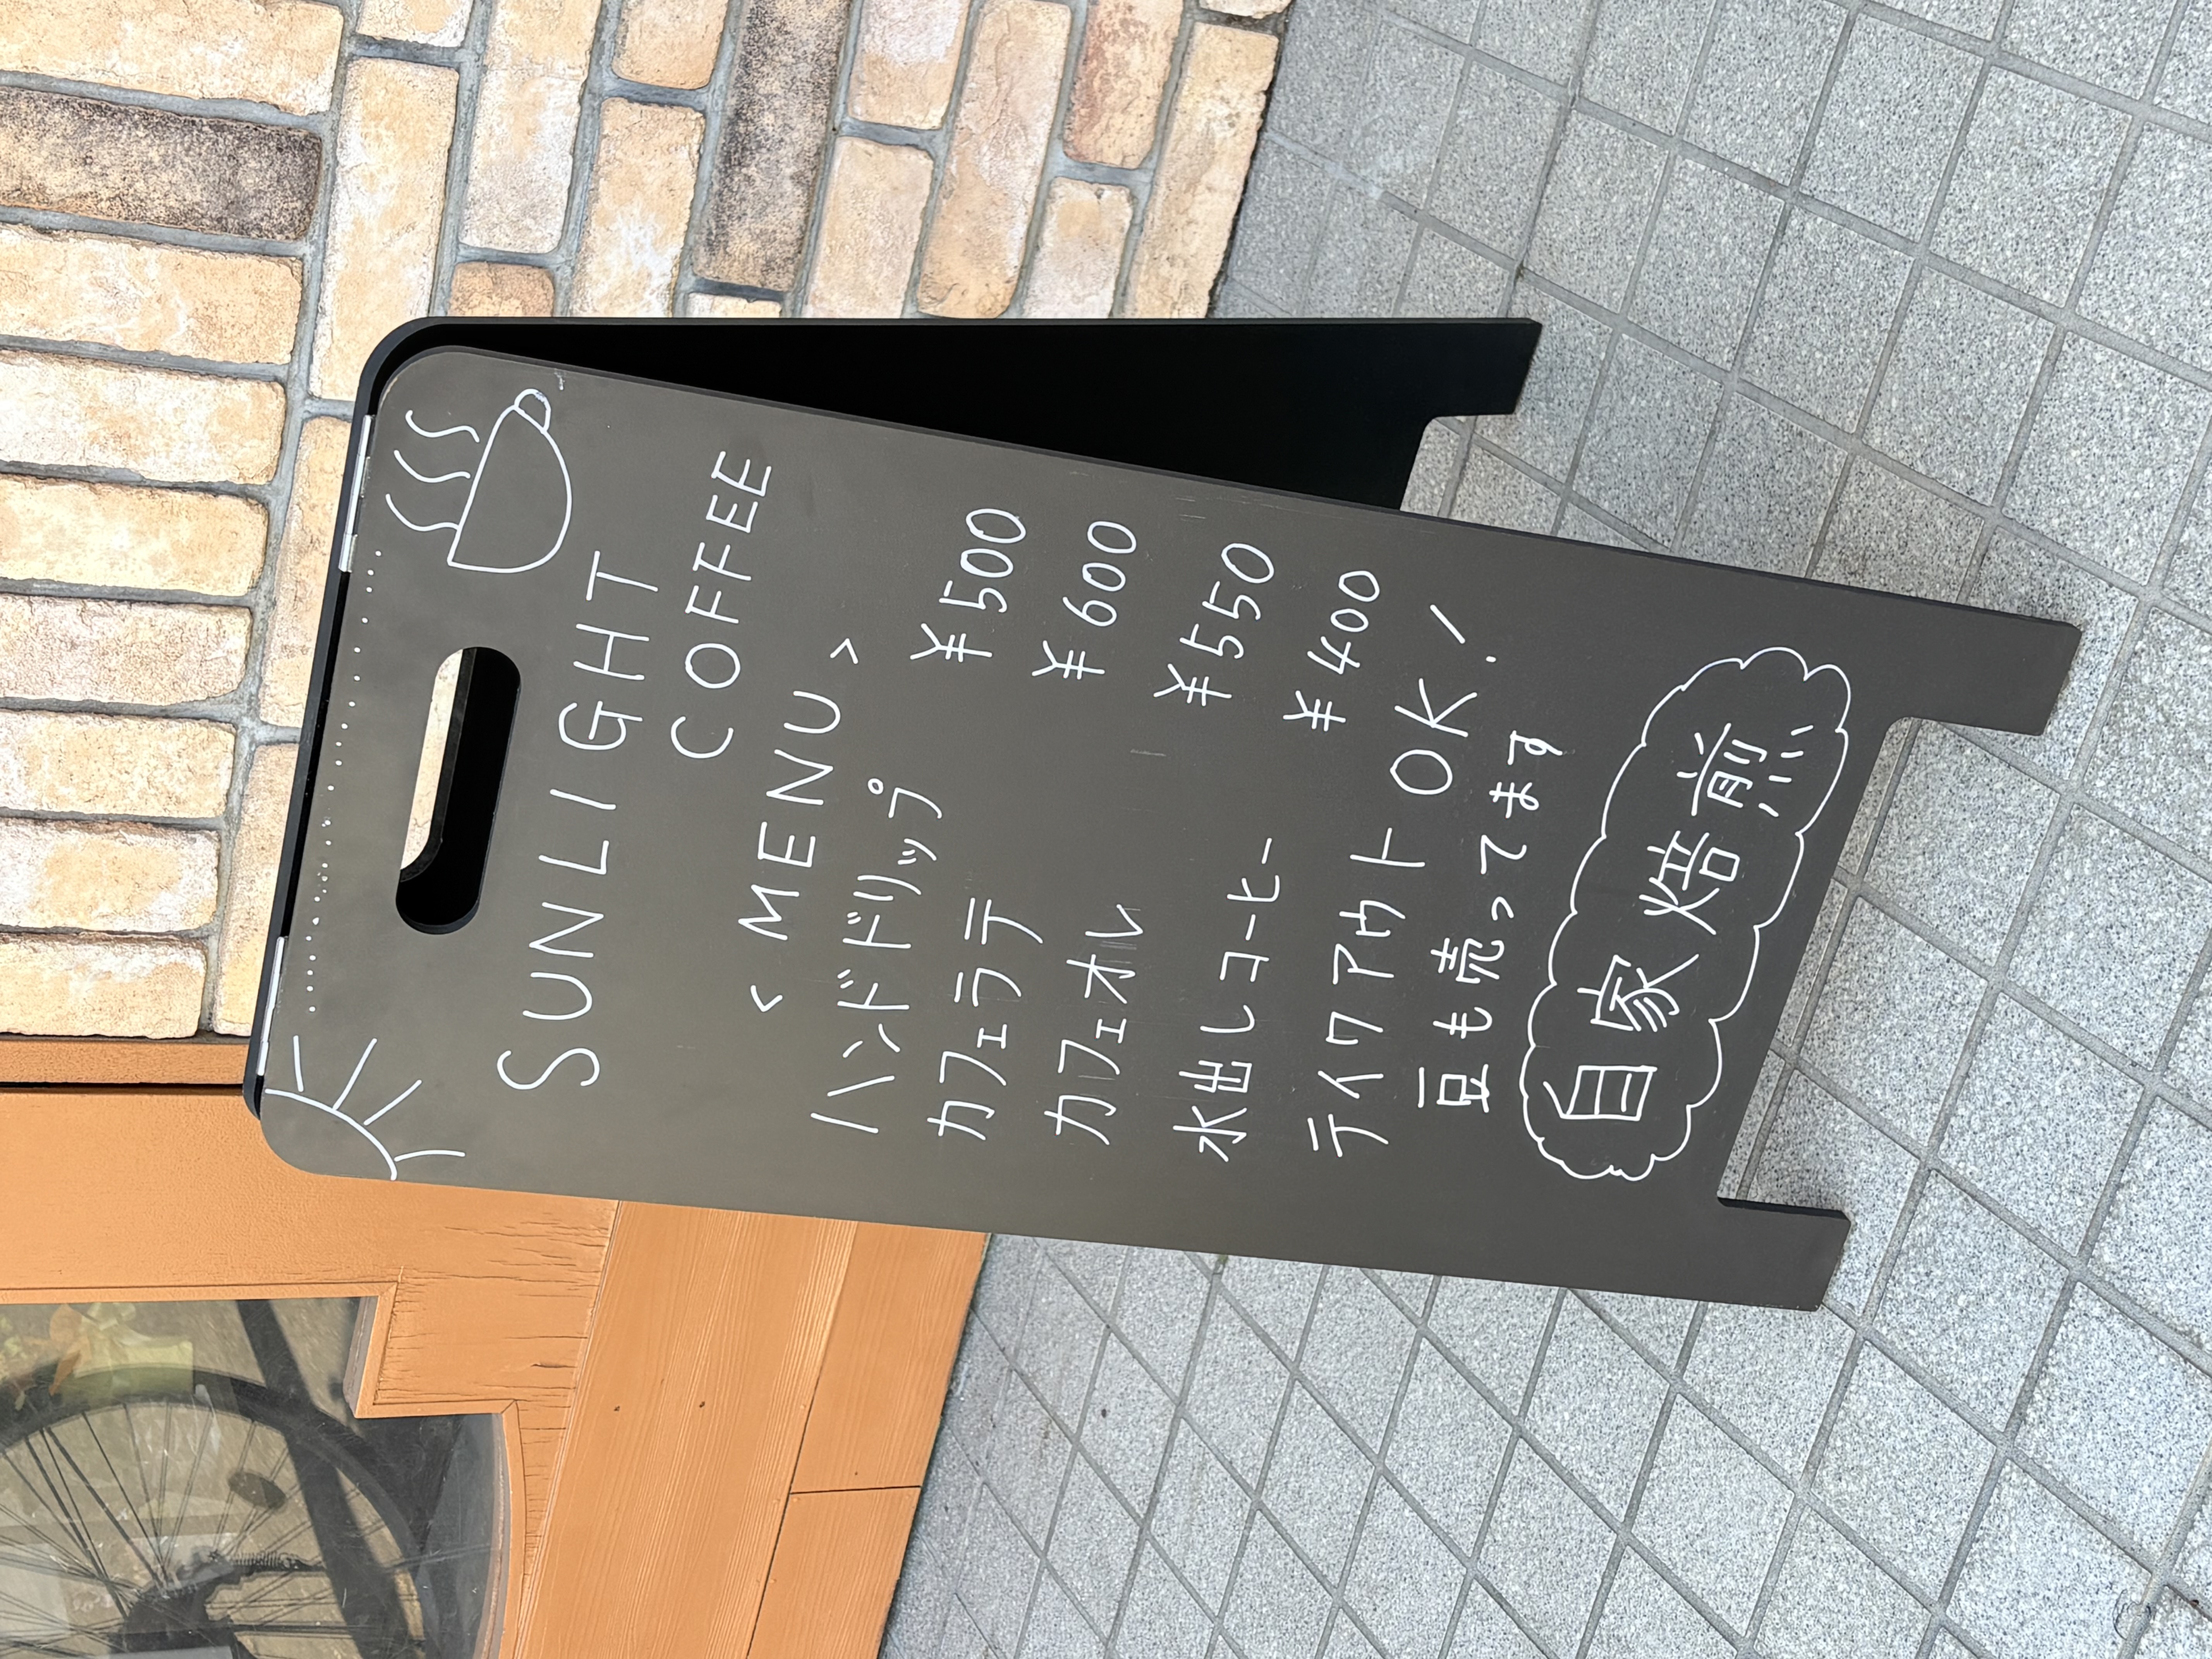 SUNLIGHT
COFFEE
<MENU>
ハンドドリップ ¥500
カフェラテ ¥600
カフェオレ ¥550
水出しコーヒー ¥400
テイクアウトOK!
豆も売ってます
自家焙煎